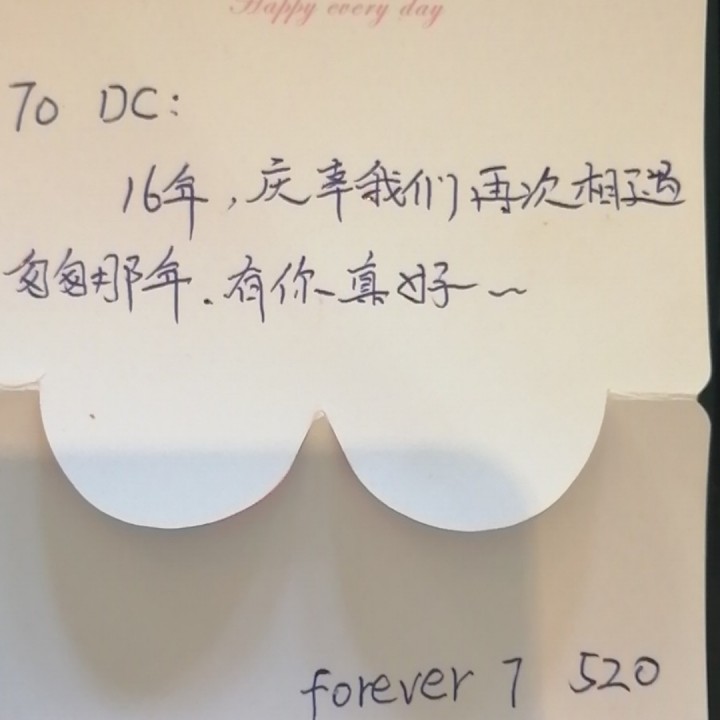 Happy every day
To DC:
16年,庆幸我们再次相遇
匆匆那年.有你真好~
forever 7 520